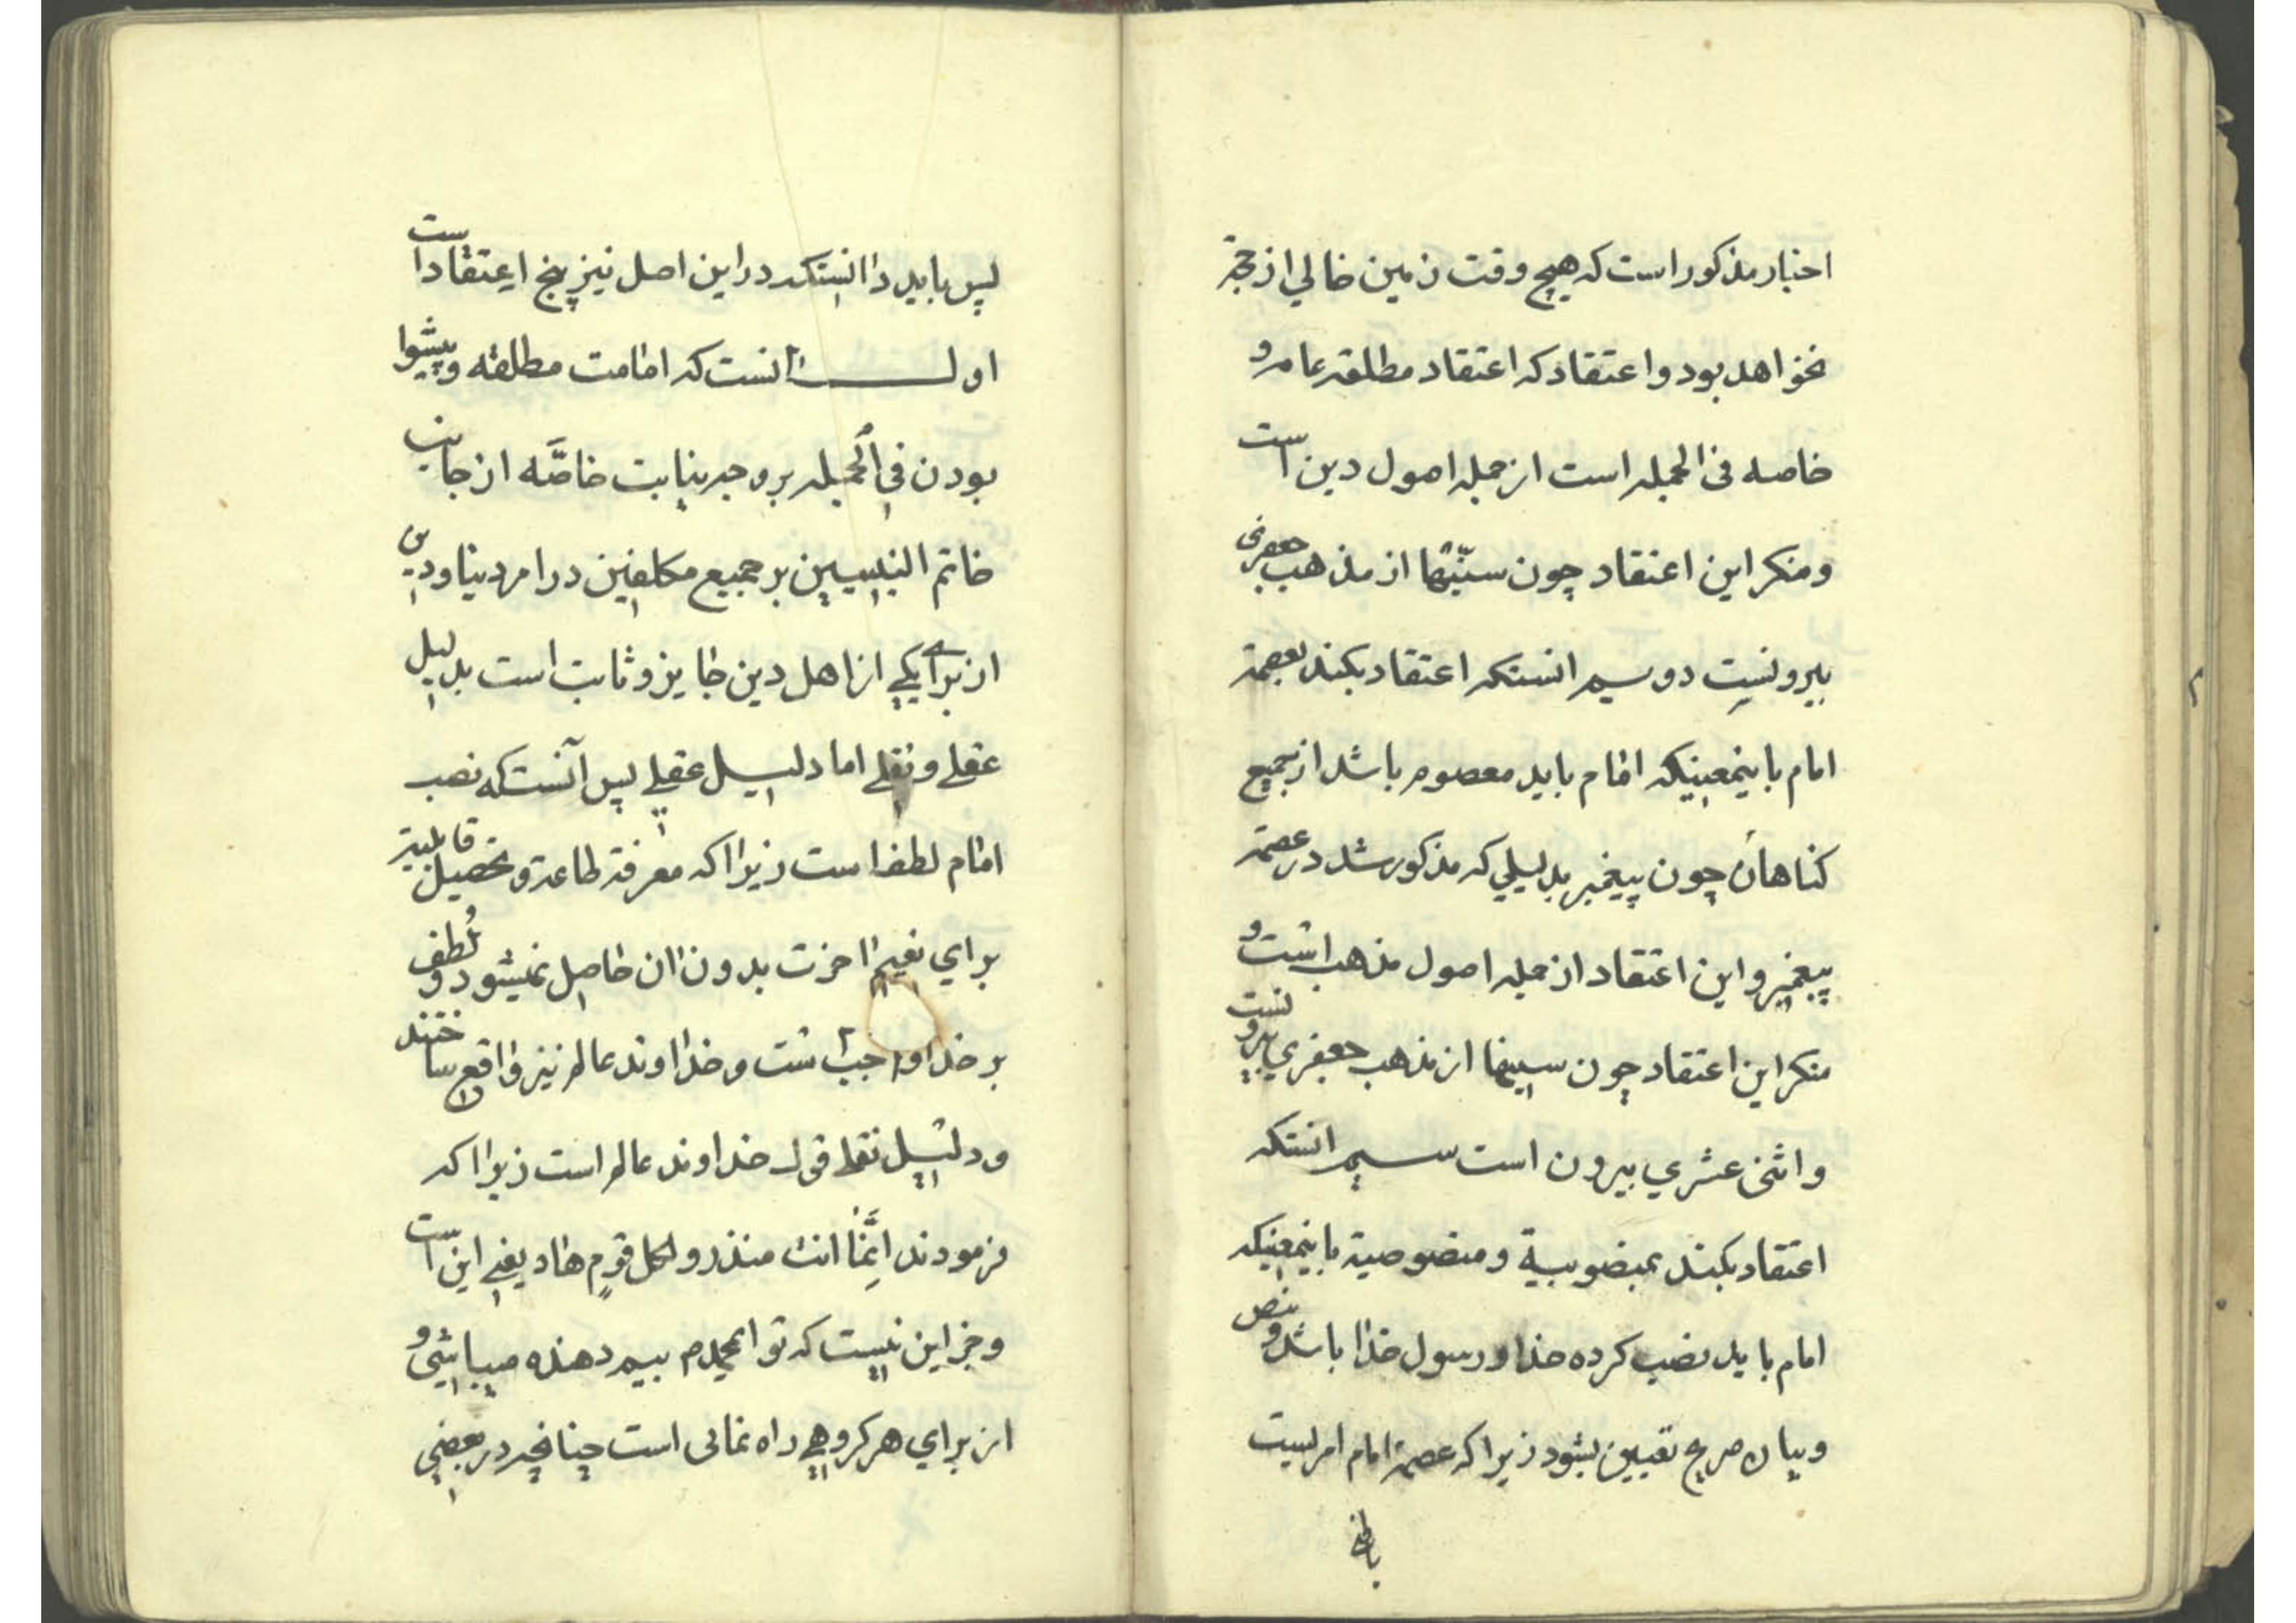 پس بايد داانستكه در اين اصل نيز پنج ايعتقاد است
اول آنست كه امامت مطلقه و پيشوا
بودن في الجمله بر وجه نيابت خاصّه از جانب
خاتم النبيين بر جميع مكلفين در امر دنيا و دين
از براي يكي از اهل دين جايز و ثابت است بدليل
عقلي و نقلي اما دليل عقلي پس آنست كه نصب
امام لطف است زيرا كه معرفة طاعة و تحصيل قابلية
براي نعيم اخرت بدون ان حاصل نميشود و لُطف
بر خدا واجب است و خداوند عالم نيز واقع ساختند
و دليل نقلي قول خداوند عالم است زيرا كه
فرمودند اِنَّما انت منذر و لكل قومٍ هاد يعني اين است
و جز اين نيست كه تو ايمحمد م بيم دهنده ميباشي و
از براي هر كروهي راه نمائى است چنانچه در بعضي
اخبار مذكور است كه هيچ وقت زمين خالي از حجة
نخواهد بود و اعتقاد كه اعتقاد مطلقه عامه و
خاصه في الجمله است از جمله اصول دين است
و منكر اين اعتقاد چون سنّيها از مذهب جعفرى
بيرونست دوسيم انستكه اعتقاد بكند بعصمة
امام باينمعنيكه امام بايد معصوم باشد از جميع
كناهان چون پيغمبر بدليلي كه مذكور شد در عصمة
پيغمبر و اين اعتقاد از جمله اصول مذهب است و
منكر اين اعتقاد چون سنيها از مذهب جعفري بيرونست
و اثنى عشري بيرون است سيم انستكه
اعتقاد بكند بمنصوبية و منصوصية باينمعنيكه
امام بايد نصب كرده خدا و رسول خدا باشد و بنص
و بيان صريح تعيين بشود زيرا كه عصمة امام امريست
باطني